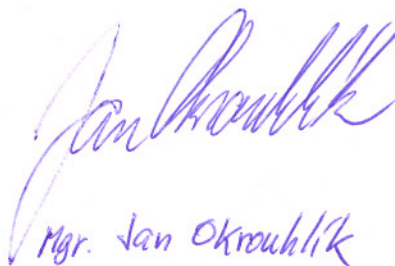 Jan Okrouhlík
Mgr. Jan Okrouhlík